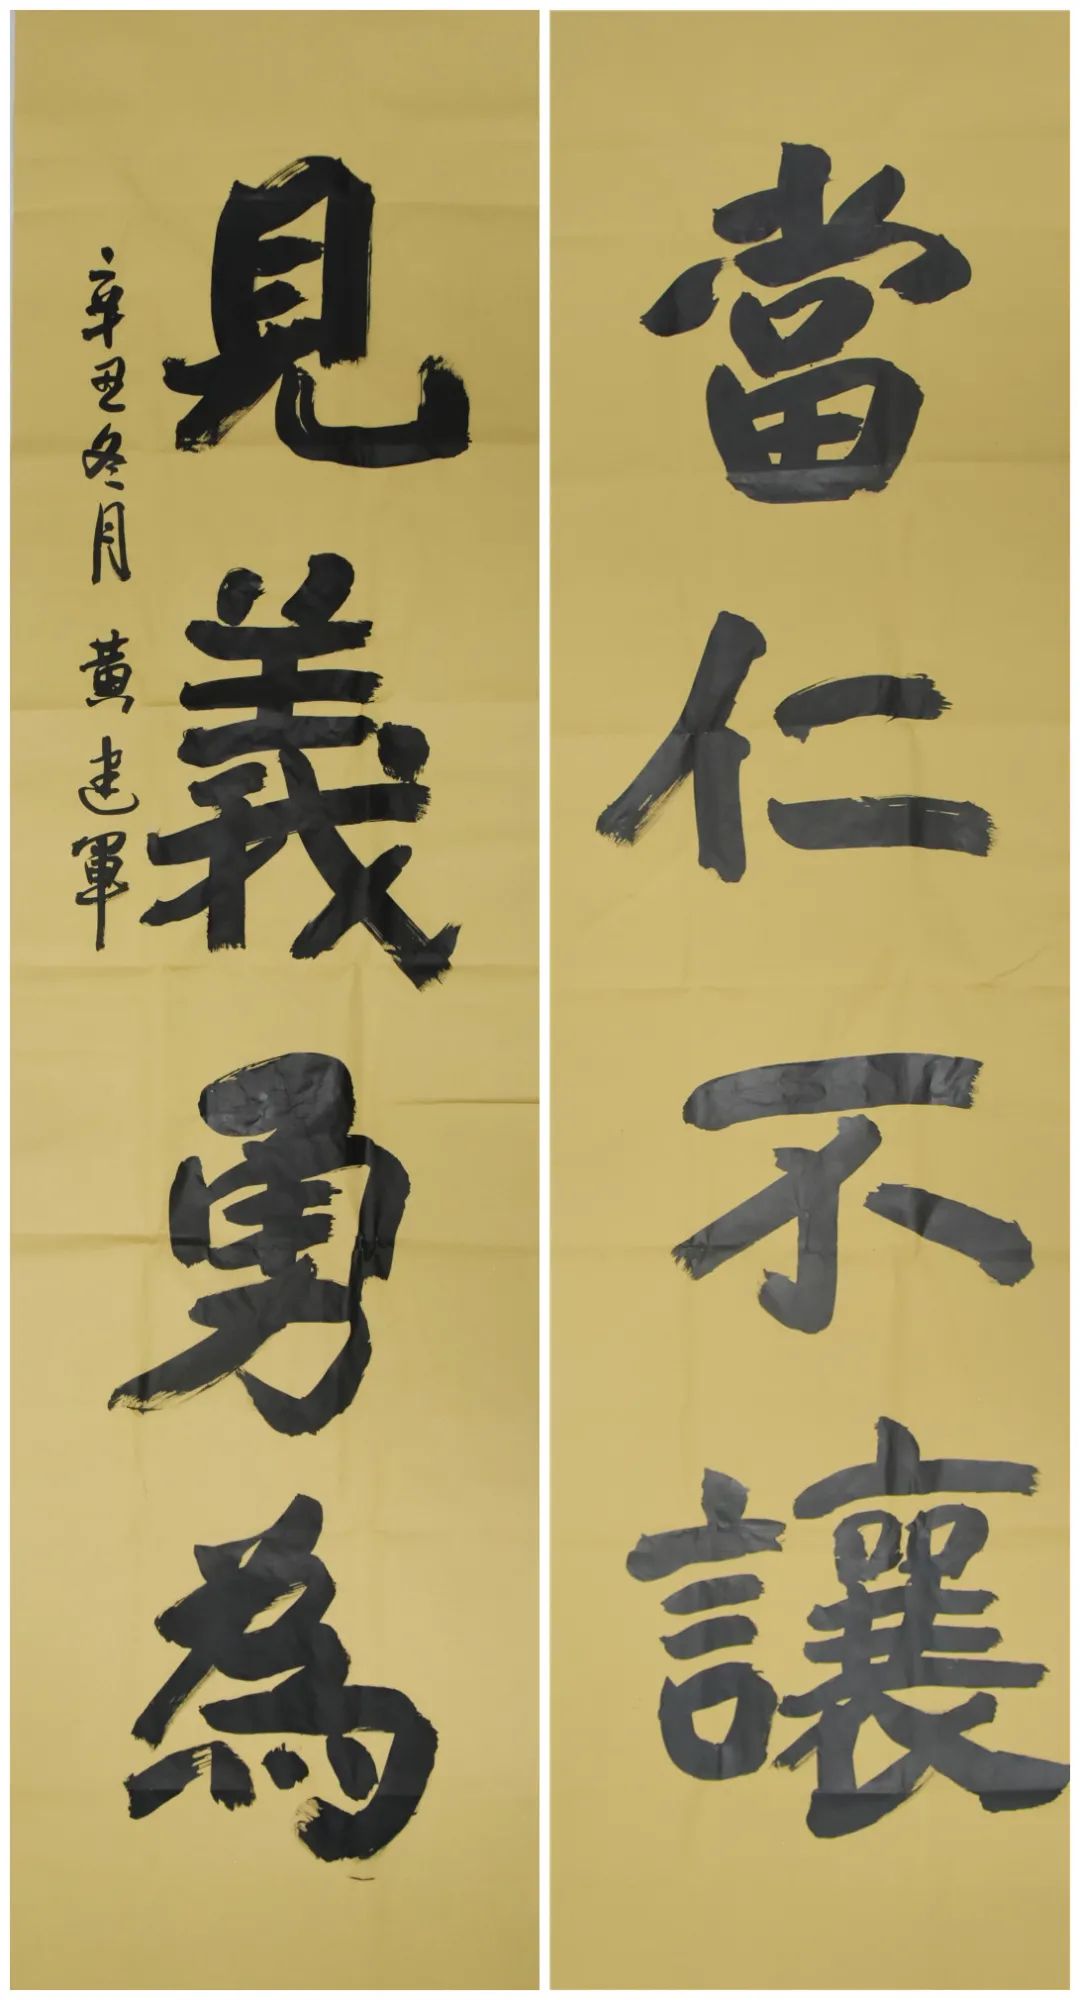 當仁不讓
見義勇為
辛丑冬月 黄建軍